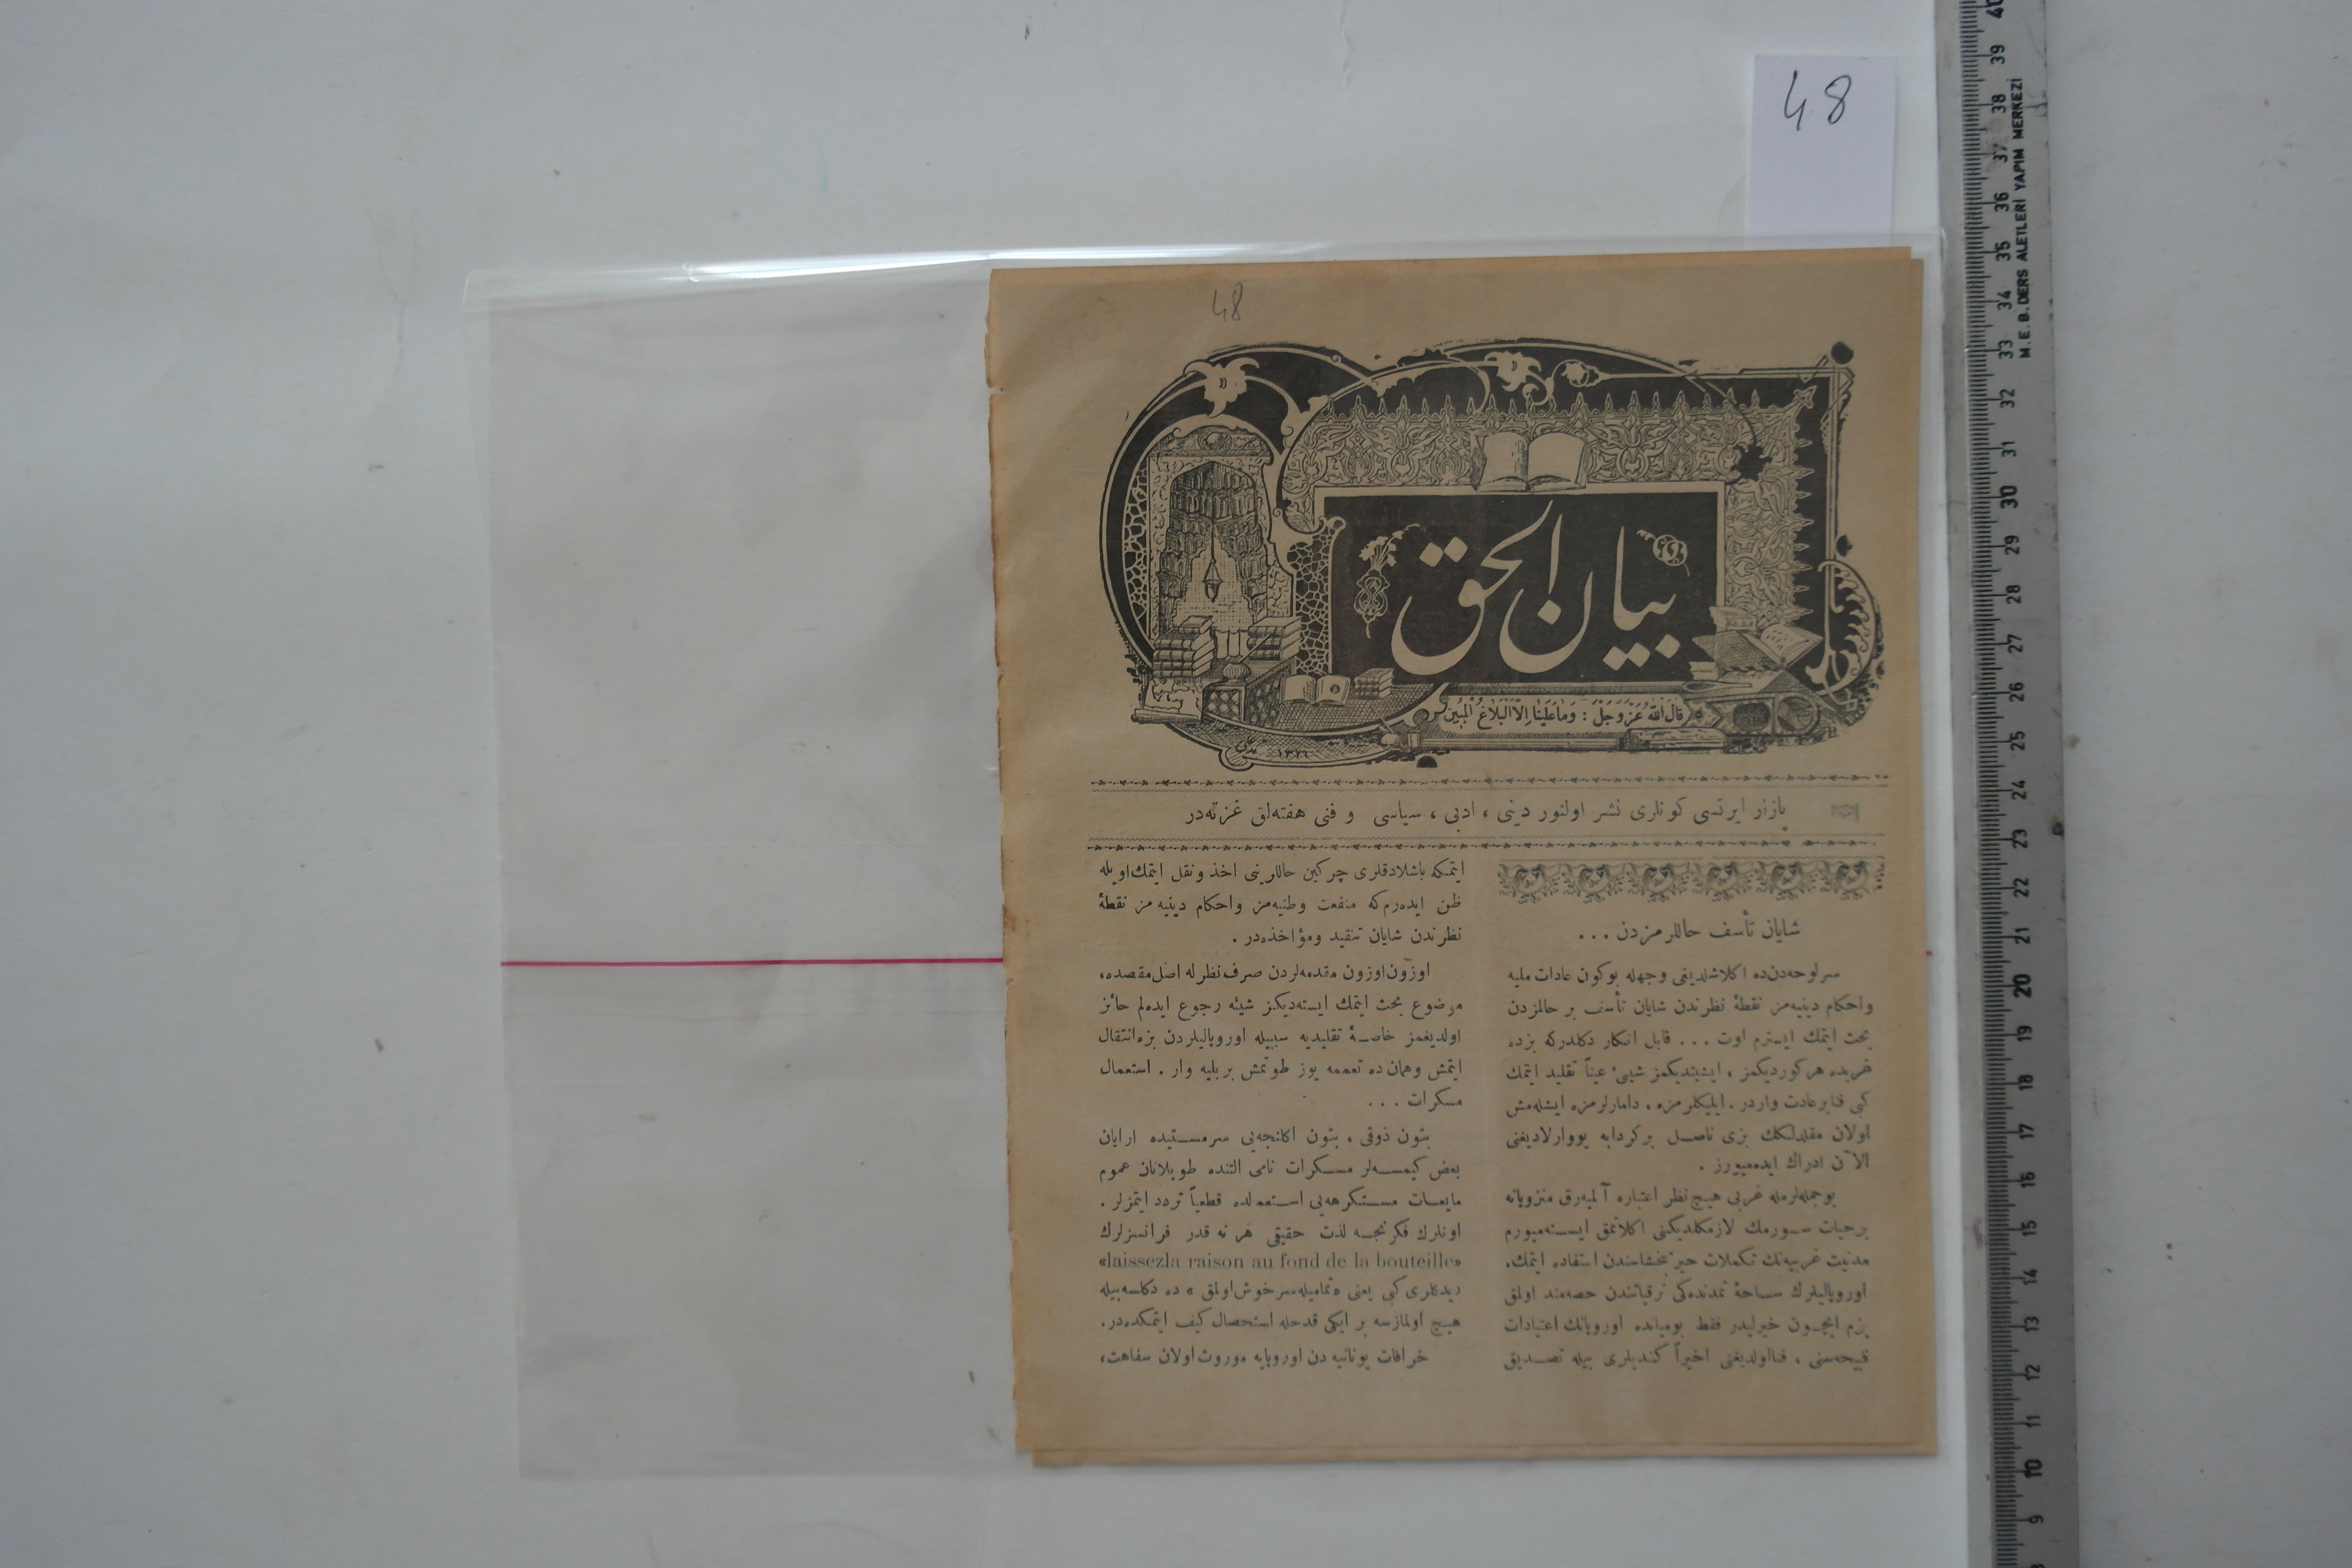 48
48
بیان الحق
قَالَ اللهُ عَزَّ وَجَلَّ : وَمَا عَلَيْنَا اِلَّا الْبَلَاغُ الْمُبِينُ
۱۳۲٦
پازار ایرتسی کونلری نشر اولنور دینی ، ادبی ، سیاسی و فنی هفته‌لق غزته‌در
شایان تأسف حاللرمزدن . . .
سرلوحه‌دن‌ده اکلاشلدیغی وجهله بوکون عادات ملیه
واحکام دینیه‌مز نقطۀ نظرندن شایان تأسف بر حالمزدن
بحث ایتمك ایسترم اوت . . . قابل انکار دکلدرکه بزده
غربده هرکوردیکمز ، ایشیتدیکمز شیئ عیناً تقلید ایتمك
کبی فنابرعادت واردر . ایلیکلرمزه ، دامارلرمزه ایشله‌مش
اولان مقلدلکك بزی ناصل برکردابه یووارلادیغنی
الآن ادراك ایده‌میورز .
بوجمله‌لرمله غربی هیچ نظر اعتباره آلمیه‌رق منزویانه
برحیات سورمك لازمکلدیکنی اکلاتمق ایسته‌میورم
مدنیت غربیه‌نك تکملات حیرتبخشاسندن استفاده ایتمك،
اوروپالیلرك ساحۀ تمدنده‌کی ترقیاتندن حصه‌مند اولمق
بزم ایچون خیرلیدر فقط بومیانده اوروپانك اعتیادات
قبیحه‌سنی ، فنااولدیغنی اخیراً کندیلری بیله تصدیق
ایتمکه باشلادقلری چرکین حاللرینی اخذ ونقل ایتمك اویله
ظن ایده‌رم‌که منفعت وطنیه‌مز واحکام دینیه‌مز نقطۀ
نظرندن شایان تنقید ومؤاخذه‌در .
اوزون اوزون مقدمه‌لردن صرف نظرله اصل مقصده،
موضوع بحث ایتمك ایسته‌دیکمز شیئه رجوع ایده‌لم حائز
اولدیغمز خاصۀ تقلیدیه سببیله اوروپالیلردن بزه انتقال
ایتمش وهمان ده تعممه یوز طوتمش بربلیه وار . استعمال
مسکرات . . .
بتون ذوقی ، بتون اکلنجه‌یی سرمستیده ارایان
بعض کیمسه‌لر مسکرات نامی التنده طوپلانان عموم
مایعات مستکرهه‌یی استعمالده قطعیاً تردد ایتمزلر .
اونلرك فکرنجه لذت حقیقی هر نه قدر فرانسزلرك
«laissezla raison au fond de la bouteille»
دیدکلری کبی یعنی «تمامیله سرخوش اولمق» ده دکلسه‌بیله
هیچ اولمازسه بر ایکی قدحله استحصال کیف ایتمکده‌در.
خرافات یونانیه دن اوروپایه موروث اولان سفاهت،
M.E.B. DERS ALETLERİ YAPIM MERKEZİ
40
39
38
37
36
35
34
33
32
31
30
29
28
27
26
25
24
23
22
21
20
19
18
17
16
15
14
13
12
11
10
9